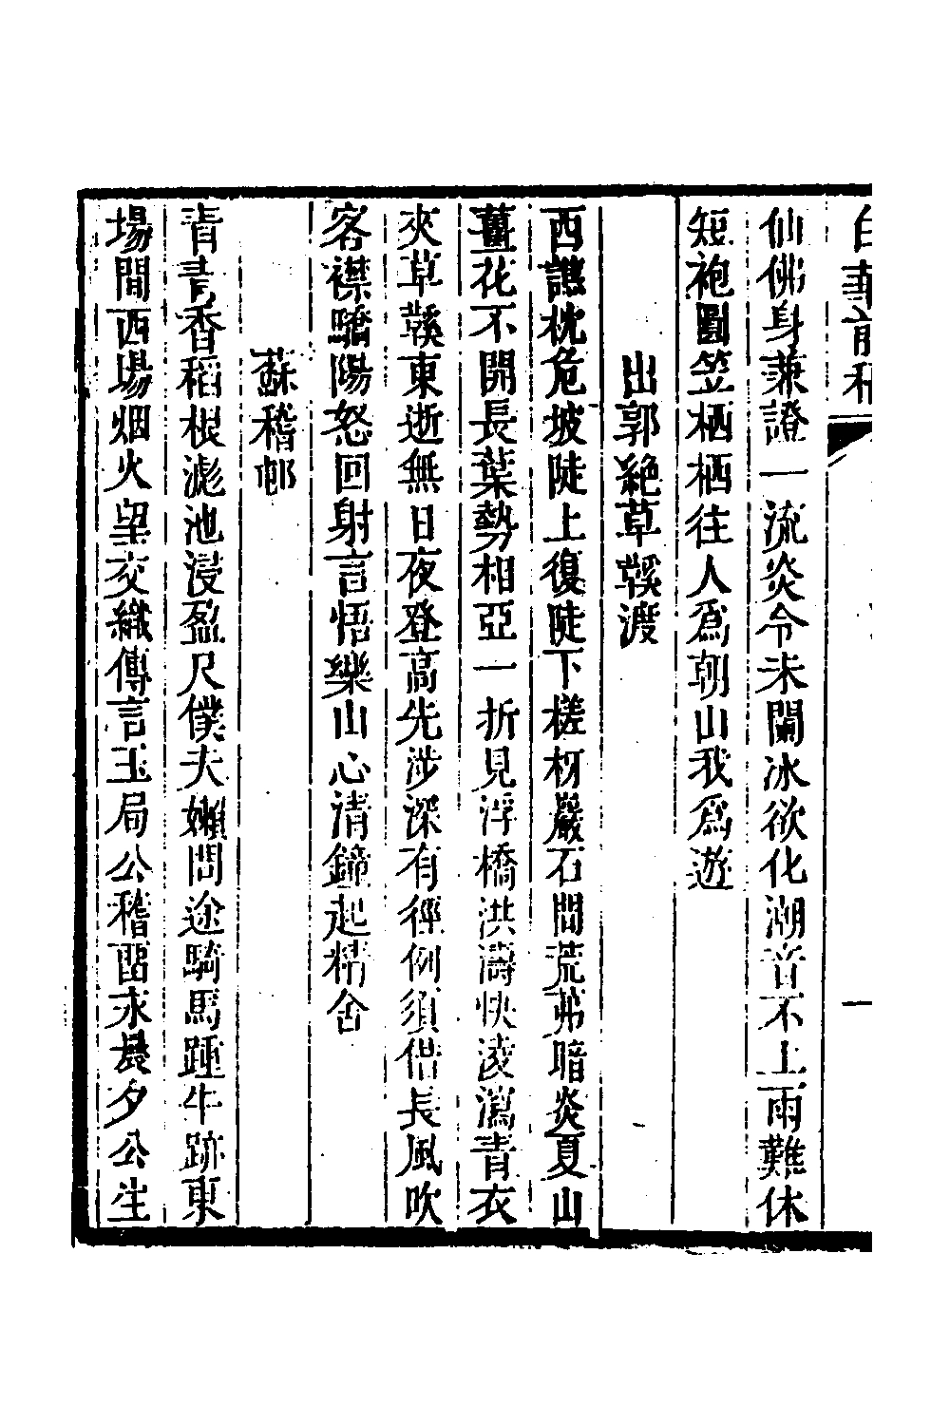 白華前稿
一
仙佛身兼證一流炎令未闌冰欲化潮音不上雨難休
短袍圓笠栖栖往人爲朝山我爲遊
出郭絶草鞵渡
西譙枕危坡陡上復陡下槎枒巖石間荒茀暗炎夏山
薑花不開長葉勢相亞一折見浮橋洪濤快淩瀉青衣
夾草鞵東逝無日夜登高先涉深有徑例須借長風吹
客襟驕陽怒回射言悟樂山心清鐘起精舍
蘇稽郵
青青香稻根滮池浸盈尺僕夫嬾問途騎馬踵牛跡東
場間西場烟火望交織傳言玉局公稽畱永晨夕公生